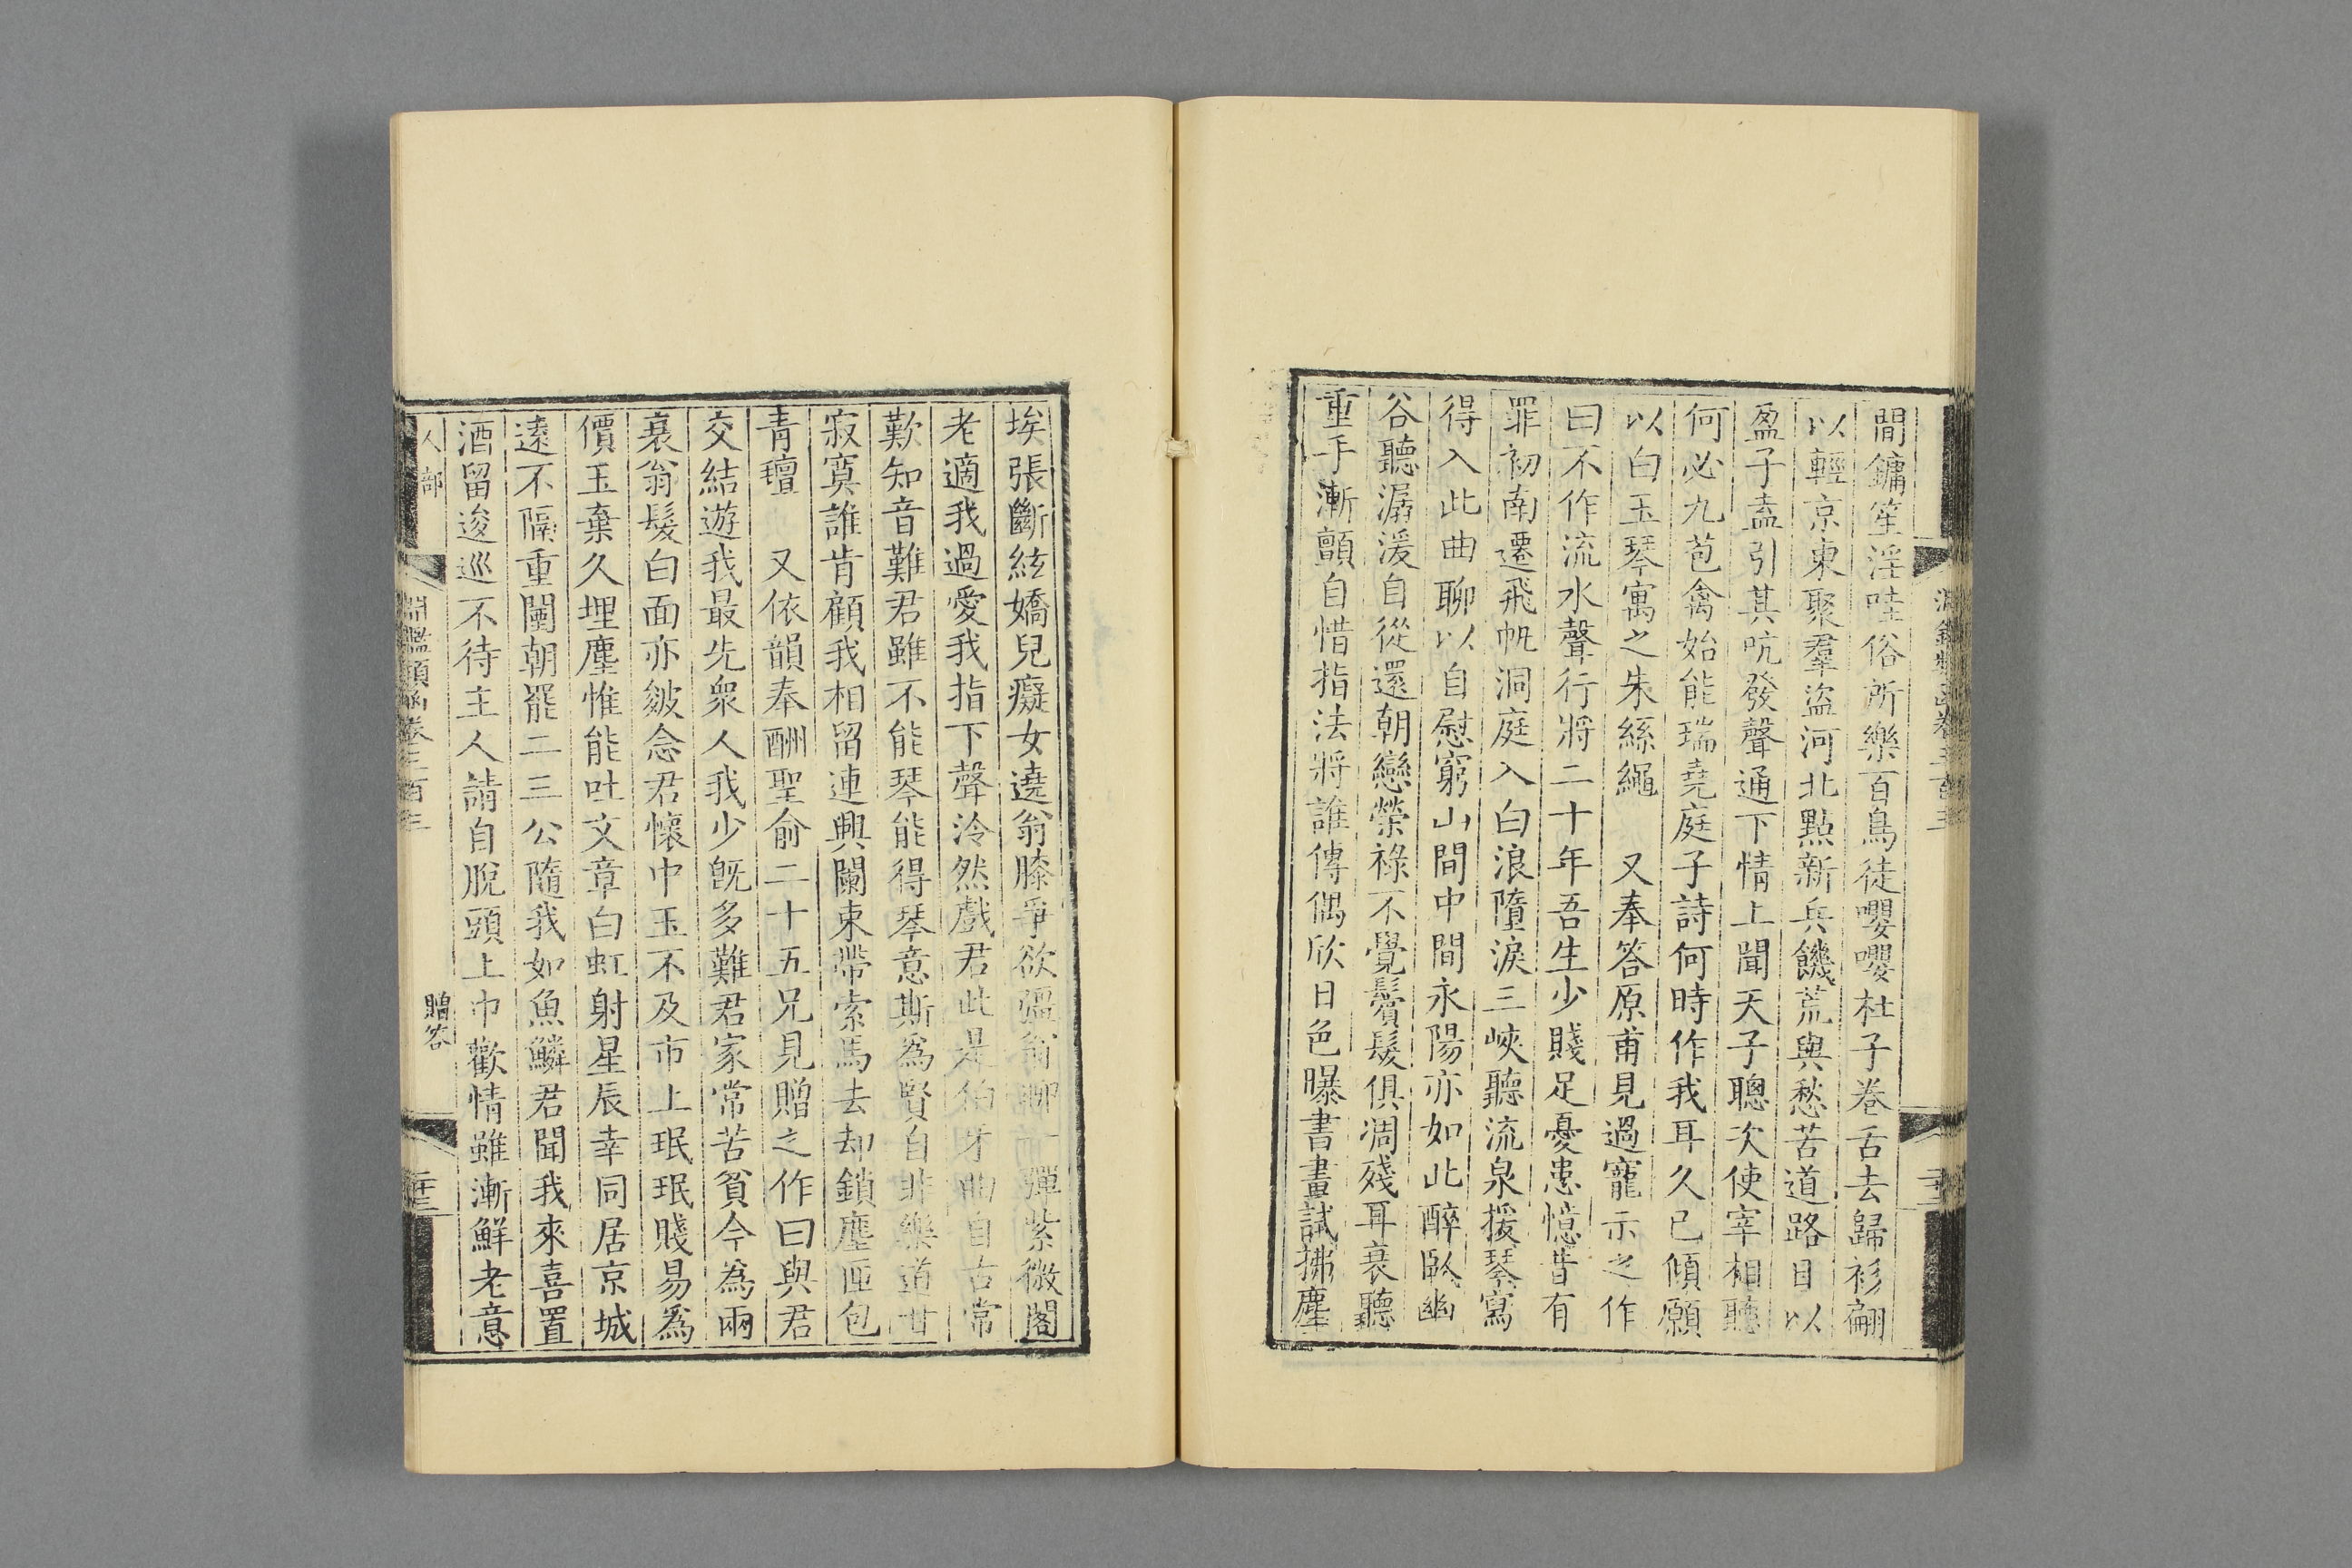 間鏞笙淫哇俗所樂百鳥徒嚶嚶杜子卷舌去歸衫翩
以輕京東聚羣盜河北點新兵饑荒與愁苦道路日以
盈子盍引其吭發聲通下情上聞天子聰次使宰相聽
何必九苞禽始能瑞堯庭子詩何時作我耳久已傾願
以白玉琴寫之朱絲繩　又奉答原甫見過寵示之作
曰不作流水聲行將二十年吾生少賤足憂患憶昔有
罪初南遷飛帆洞庭入白浪墮淚三峽聽流泉援琴寫
得入此曲聊以自慰窮山間中間永陽亦如此醉臥幽
谷聽潺湲自從還朝戀榮祿不覺鬢髮俱凋殘耳衰聽
重手漸顫自惜指法將誰傳偶欣日色曝書畫試拂塵
埃張斷絃嬌兒癡女遶翁膝爭欲彊翁聊一彈紫微閣
老適我過愛我指下聲泠然戲君此是伯牙曲自古常
歎知音難君雖不能琴能得琴意斯為賢自非樂道甘
寂寞誰肯顧我相留連興闌束帶索馬去却鎖塵匣包
青氊　又依韻奉酬聖俞二十五兄見贈之作曰與君
交結遊我最先衆人我少旣多難君家常苦貧今為兩
衰翁髮白面亦皴念君懷中玉不及市上珉珉賤易為
價玉棄久埋塵惟能吐文章白虹射星辰幸同居京城
遠不隔重闉朝罷二三公隨我如魚鱗君聞我來喜置
酒留逡巡不待主人請自脫頭上巾歡情雖漸鮮老意
人部
淵鑑類函卷三百三
贈答